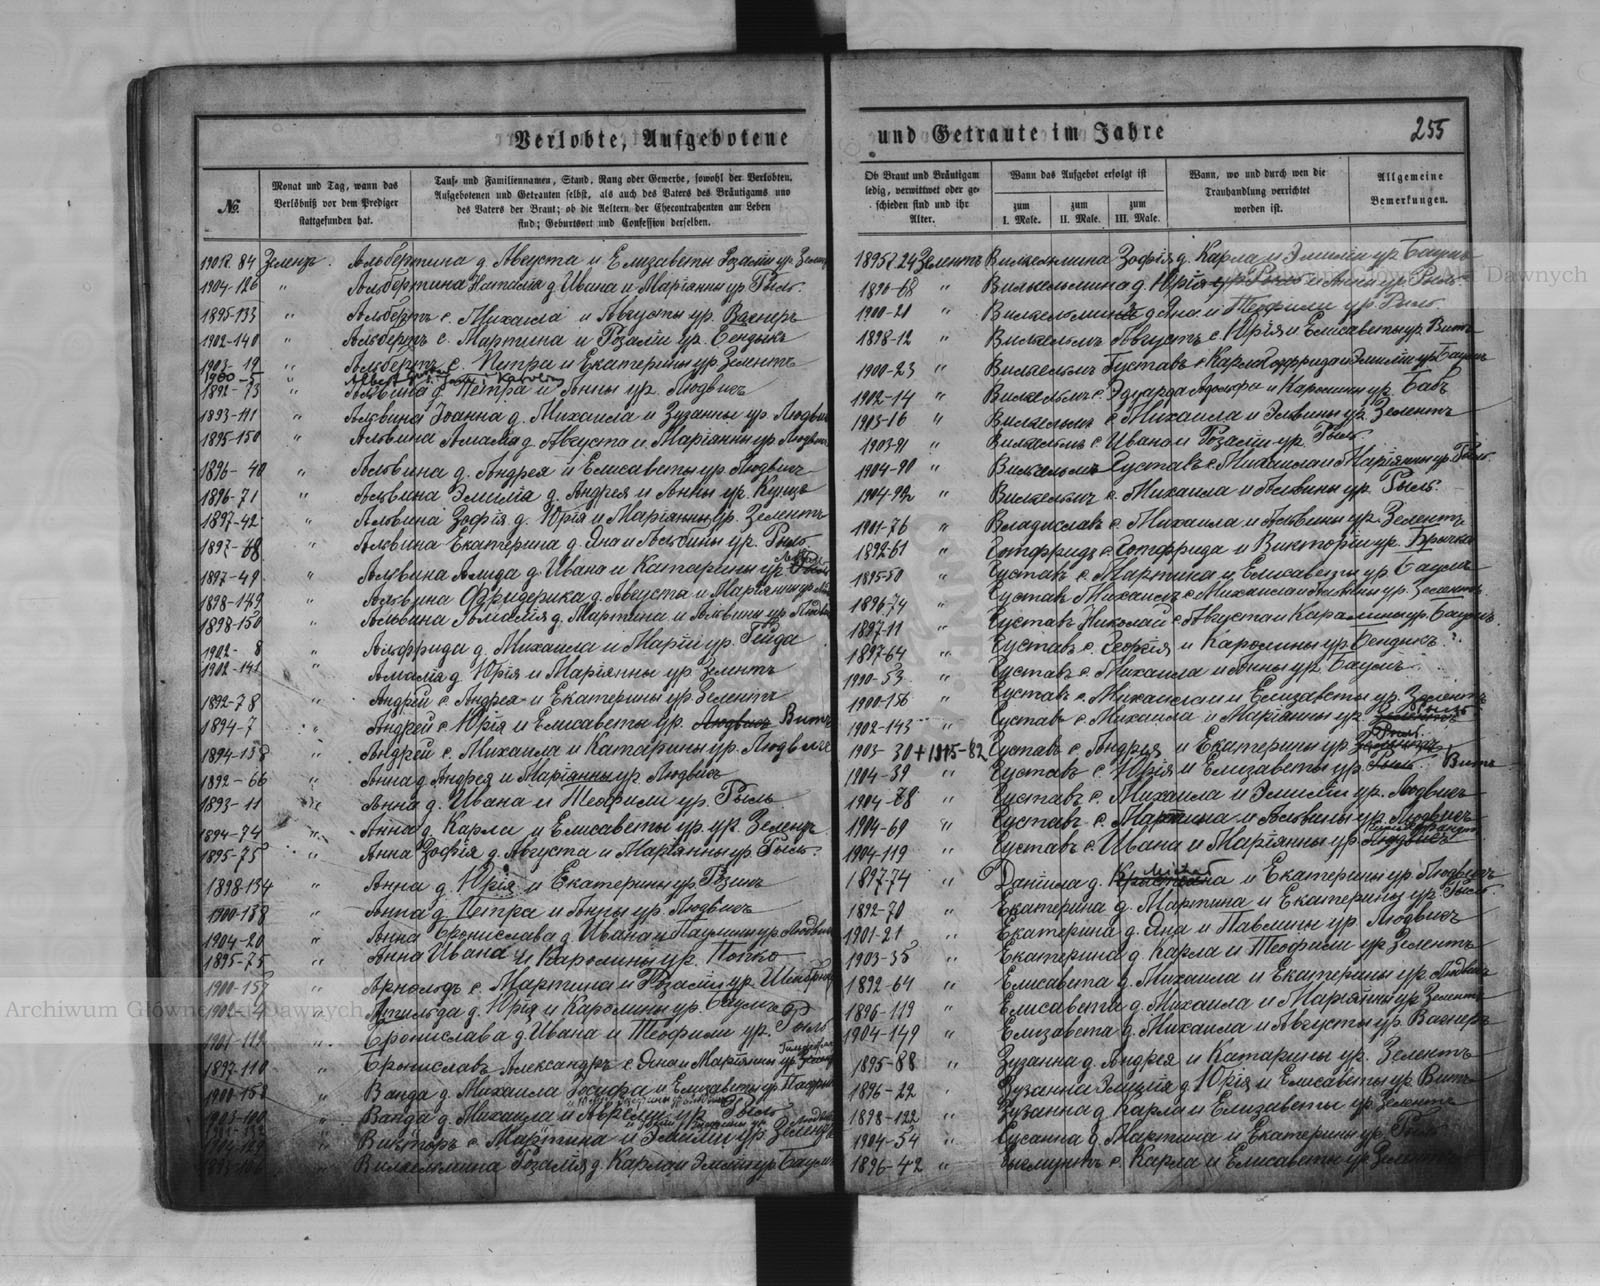 Verlobte, Aufgebotene
und Getraute im Jahre
255
№.
Monat und Tag, wann das
Verlöbniß vor dem Prediger
stattgefunden hat.
Tauf- und Familiennamen, Stand, Rang oder Gewerbe, sowohl der Verlobten,
Aufgebotenen und Getrauten selbst, als auch des Vaters des Bräutigams und
des Vaters der Braut; ob die Aeltern der Ehecontrahenten am Leben
sind; Geburtsort und Confession derselben.
Ob Braut und Bräutigam
ledig, verwittwet oder ge-
schieden sind und ihr
Alter.
Wann das Aufgebot erfolgt ist
zum
I. Male.
zum
II. Male.
zum
III. Male.
Wann, wo und durch wen die
Trauhandlung verrichtet
worden ist.
Allgemeine
Bemerkungen.
84 Зелентъ. Альбертина д. Августа и Елизаветы Розалiи ур.
1904-126 " Альбертина Наталiя д. Ивана и Марiанны ур. Рыль.
1895-133 " Альбертъ с. Михаила и Августы ур. Вагнеръ
1902-140 " Альбертъ с. Мартина и Розалiи ур. Бендыкъ
1903-19 " Альбертъ с. Петра и Екатерины ур. Зелентъ
1892-73 " Альвина д. Петра и Анны ур. Людвигъ
1893-111 " Альвина Iоанна д. Михаила и Зузанны ур.
1895-150 " Альвина Амалiя д. Августа и Марiанны ур.
1896-40 " Альвина д. Андрея и Елисаветы ур. Людвигъ
1896-71 " Альвина Эмилiя д. Андрея и Анны ур. Кунце
1897-42 " Альвина Зофiя д. Юрiя и Марiанны ур. Зелентъ
1897-68 " Альвина Екатерина д. Яна и Альвины ур. Рыль
1897-49 " Альвина Алида д. Ивана и Катарины ур.
1898-149 " Альвина Фридерика д. Августа и Марiанны ур.
1898-150 Альвина д. Мартина и Альвины ур.
1902-8 " Альфрида д. Михаила и Марiи ур. Гейда
1902-141 " Амалiя д. Юрiя и Марiанны ур. Зелентъ
1892-78 " Андрей с. Андрея и Екатерины ур. Зелентъ
1894-7 " Андрей с. Юрiя и Елисаветы ур. Людвигъ Витъ
1894-138 " Андрей с. Михаила и Катарины ур. Людвигъ
1892-66 " Анна д. Андрея и Марiанны ур. Людвигъ
1893-11 " Анна д. Ивана и Теофили ур. Рыль
1894-74 " Анна д. Карла и Елисаветы ур. ур. Зелентъ
1895-75 " Анна Зофiя д. Августа и Марiанны ур. Рыль.
1898-134 " Анна д. Юрiя и Екатерины ур.
1900-138 " Анна д. Петра и Анны ур. Людвигъ
1904-20 " Анна Бронислава д. Ивана и Паулины ур.
1895-75 " Анна Ивана и Каролины ур. Попко
1900-157 " Арнольдъ с. Мартина и Розалiи ур.
д. Юрiя и Каролины ур. Баумъ
" Бронислава д. Ивана и Теофили ур. Рыль
1897-110 " Брониславъ Александръ с. Яна и Марiанны ур.
1900-158 " Ванда д. Михаила Iосифа и Елизаветы ур.
1903-100 " Ванда д. Михаила и ур. Рыль
" Викторъ с. Мартина и Эмилiи ур. Зелентъ
Вильгельмина Розалiя д. Карла и Эмилiи ур. Баумъ
1895-24 Зелентъ Вильгельмина Зофiя д. Карла и Эмилiи ур. Баумъ
1896-68 " Вильгельмина д. Юрiя и Анны ур. Рыль.
1900-21 " Вильгельмина д. Яна и Теофили ур. Рыль
1898-12 " Вильгельмъ Августъ с. Юрiя и Елисаветы ур. Витъ
1900-23 " Вильгельмъ Густавъ с. Карла Готфрида и Эмилiи ур. Баумъ
1902-14 " Вильгельмъ с. Эдуарда Адольфа и Каролины ур. Бабъ
1903-16 " Вильгельмъ с. Михаила и Альвины ур. Зелентъ
1903-91 " Вильгельмъ с. Ивана и Розалiи ур. Рыль.
1904-90 " Вильгельмъ Густавъ с. Михаила и Марiанны ур. Рыль.
1904-92 " Вильгельмъ с. Михаила и Альвины ур. Рыль.
1901-76 " Владиславъ с. Михаила и Альвины ур. Зелентъ
1892-61 " Готфридъ с. Готфрида и Викторiи ур. Бричка
1895-50 " Густавъ с. Мартина и Елисаветы ур. Баумъ
1896-74 " Густавъ Михаилъ с. Михаила и Альвины ур. Зелентъ.
1897-11 " Густавъ Николай с. Августа и Каролины ур. Баумъ.
1897-64 " Густавъ с. Георгiя и Каролины ур. Бендикъ.
1900-53 " Густавъ с. Михаила и Анны ур. Баумъ.
1900-156 " Густавъ с. Михаила и Елизаветы ур. Зелентъ
1902-143 " Густавъ с. Михаила и Марiанны ур. Рыль
1903-30+1915-82 Густавъ с. Андрея и Екатерины ур. Рыль
1904-39 " Густавъ с. Юрiя и Елизаветы ур. Рыль Витъ
1904-78 " Густавъ с. Михаила и Эмилiи ур. Людвигъ
1904-69 " Густавъ с. Мартина и Альвины ур. Людвигъ
1904-119 " Густавъ с. Ивана и Марiанны ур. Людвигъ
1897-74 " Данiила д. и Екатерины ур. Людвигъ
1892-70 " Екатерина д. Мартина и Екатерины ур. Рыль
1901-21 " Екатерина д. Яна и Павлины ур. Людвигъ
1903-35 " Екатерина д. Карла и Теофили ур. Зелентъ
1892-64 " Елисавета д. Михаила и Екатерины ур. Людвигъ
1896-119 " Елисавета д. Михаила и Марiанны ур. Зелентъ
1904-149 " Елизавета д. Михаила и Августы ур. Вагнеръ
1895-88 " Зузанна д. Андрея и Катарины ур. Зелентъ
1896-22 Зузанна д. Юрiя и Елисаветы ур. Витъ
1898-122 " Зузанна д. Карла и Елизаветы ур. Зелентъ
1904-54 " Сусанна д. Мартина и Екатерины ур. Рыль
1896-42 " с. Карла и Елисаветы ур.
Archiwum Główne Akt Dawnych
Archiwum Główne Akt Dawnych